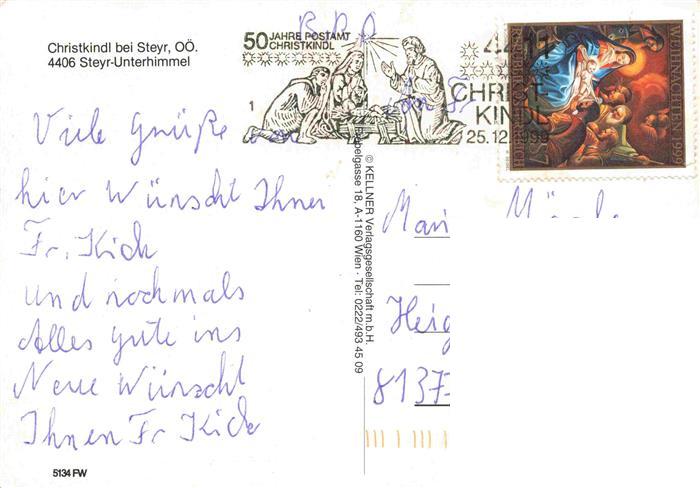 Christkindl bei Steyr, OÖ.
4406 Steyr-Unterhimmel
50 JAHRE POSTAMT
CHRISTKINDL
1
4411
CHRIST
KINDL
25.12.1999
WEIHNACHTEN 1999
REPUBLIK ÖSTERREICH
7
Viele Grüße von
hier Wünscht Ihner
Fr. Kick
und nochmals
Alles gute ins
Neue Wünscht
Ihnen Fr Kick
5134 FW
© KELLNER Verlagsgesellschaft m.b.H.
Habelgasse 18, A-1160 Wien · Tel: 0222/493 45 09
Heig
8137